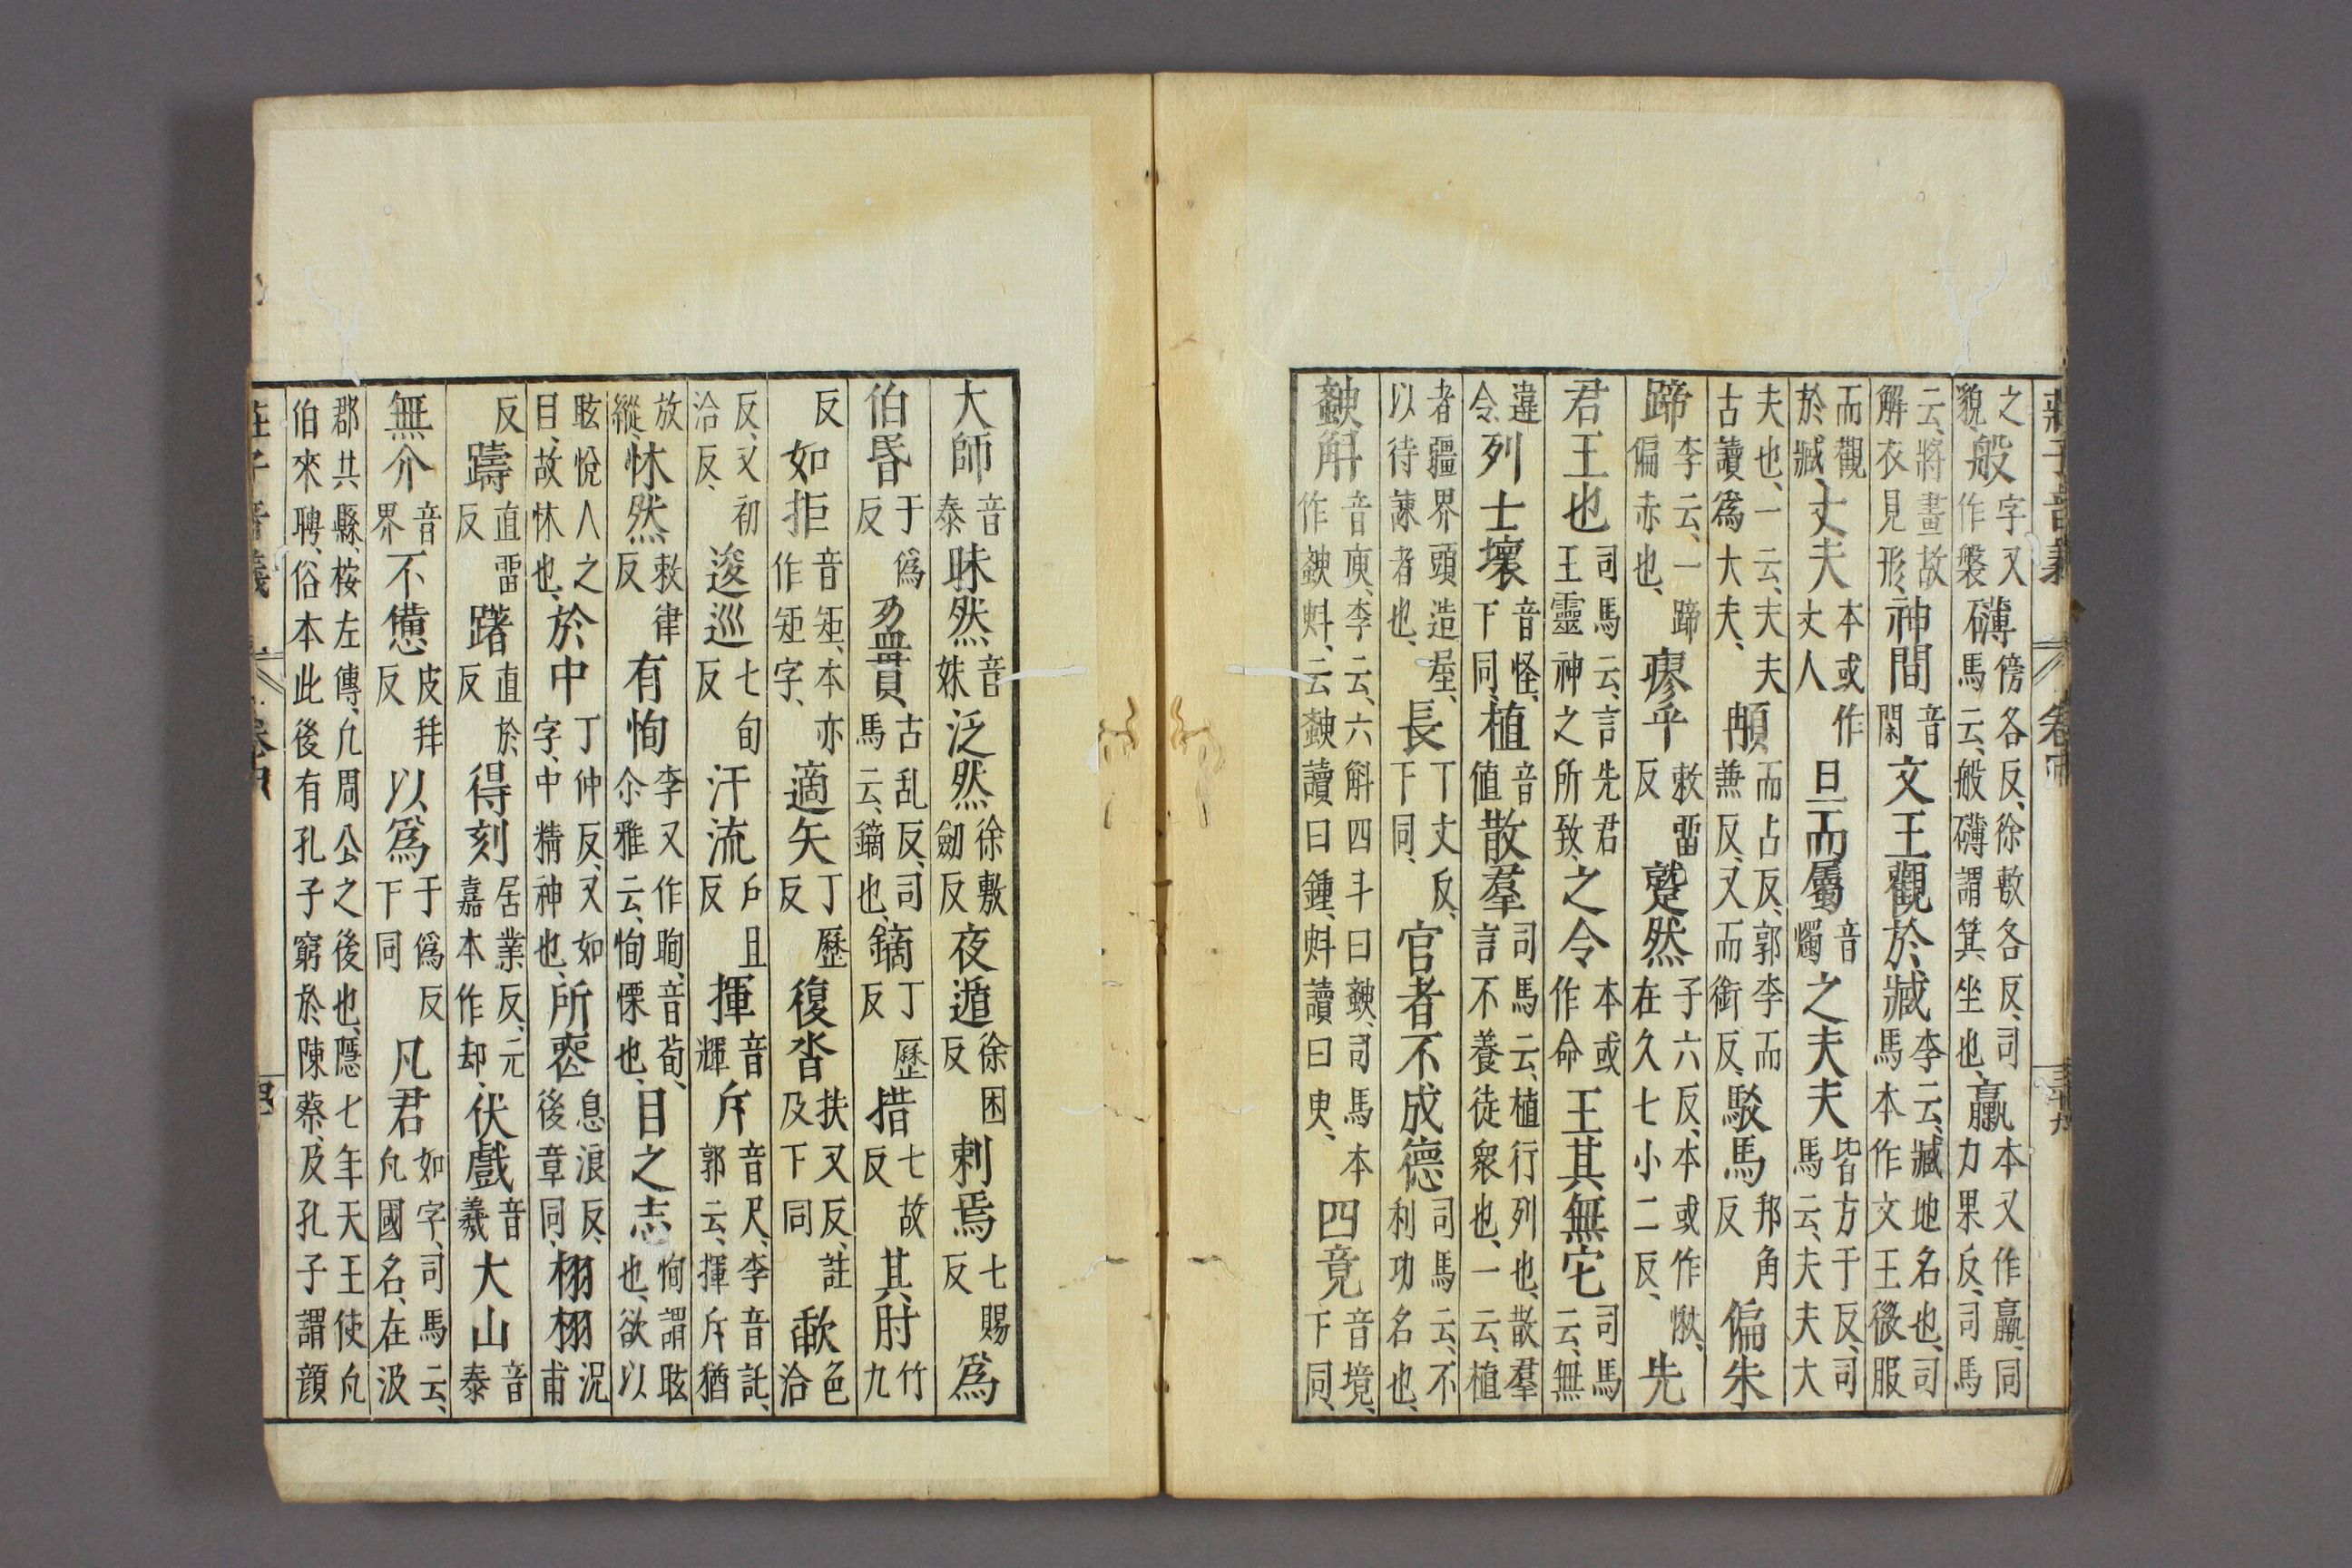 莊子音義 卷中 三十九
之貌、般字又作槃礴傍各反、徐敷各反、司馬云、般礴謂箕坐也、臝本又作臝、同力果反、司馬
云、將畫故解衣見形、神間音閑文王觀於臧李云、臧地名也、司馬本作文王微服
而觀於臧、丈夫本或作丈人旦而屬音燭之夫夫皆方于反、司馬云、夫夫大
夫也、一云、夫夫古讀爲大夫、𩑺而占反、郭李而兼反、又而銜反、駁馬邦角反偏朱
蹄李云、一蹄偏赤也、瘳乎敕留反蹵然子六反、本或作愀、在久七小二反、先
君王也司馬云、言先君王靈神之所致、之令本或作命王其無它司馬云、無
違令列士壞音怪、下同、植音値散羣司馬云、植行列也、散羣言不養徒衆也、一云、植
者疆界頭造屋、以待諫者也、長丁丈反、下同、官者不成德司馬云、不利功名也、
斔斛音庾、李云、六斛四斗曰斔、司馬本作斔蚪、云斔讀曰鍾、蚪讀曰臾、四竟音境、下同、
大師音泰昧然音妹泛然徐敷劒反夜遁徐困反刺焉七賜反爲
伯昏于僞反盈貫、古乱反、司馬云、鏑也、鏑丁歷反措七故反其肘竹九
反如拒音矩、本亦作矩字、適矢丁歷反復沓扶又反、註及下同歃色洽
反、又初洽反、逡巡七旬反汗流戶旦反揮音輝斥音尺、李音託、郭云、揮斥猶
放縱、怵然敕律反有恂李又作眴、音荀、尒雅云、恂慄也、目之志恂謂眩也、欲以
眩悅人之目、故怵也、於中丁仲反、又如字、中精神也、所喪息浪反、後章同、栩栩況甫
反躊直留反躇直於反得刻居業反、元嘉本作却、伏戲音羲大山音泰
無介音界不憊皮拜反以爲于僞反下同凡君如字、司馬云、凡國名、在汲
郡共縣、桉左傳、凡周公之後也、隱七年天王使凡伯來聘、俗本此後有孔子窮於陳蔡、及孔子謂顏
莊子音義 卷中